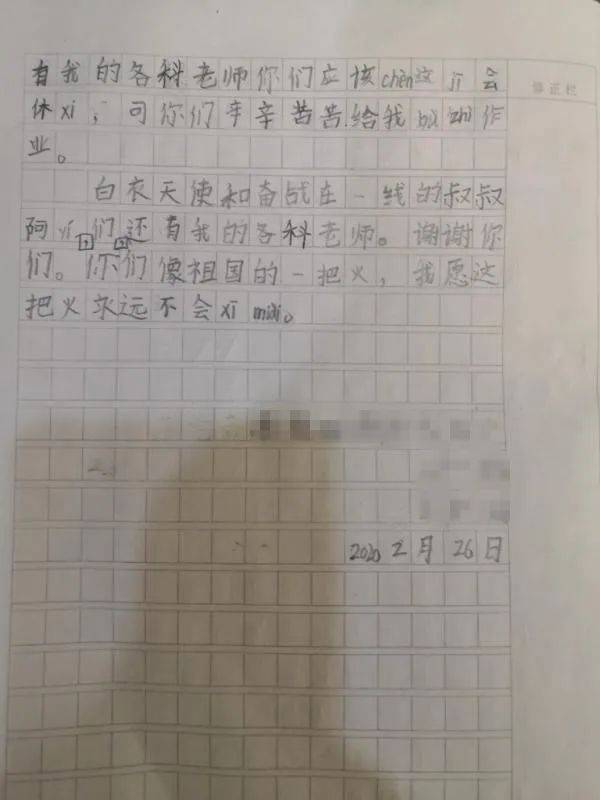 有我的各科老师你们应该chèn这jī会
修正栏
休xī，可你们辛辛苦苦给我bù zhì作
业。
白衣天使和奋战在一线的叔叔
阿yí们还有我的各科老师。谢谢你
们。你们像祖国的一把火，我愿这
把火永远不会xī miè。
2020 2月 26日